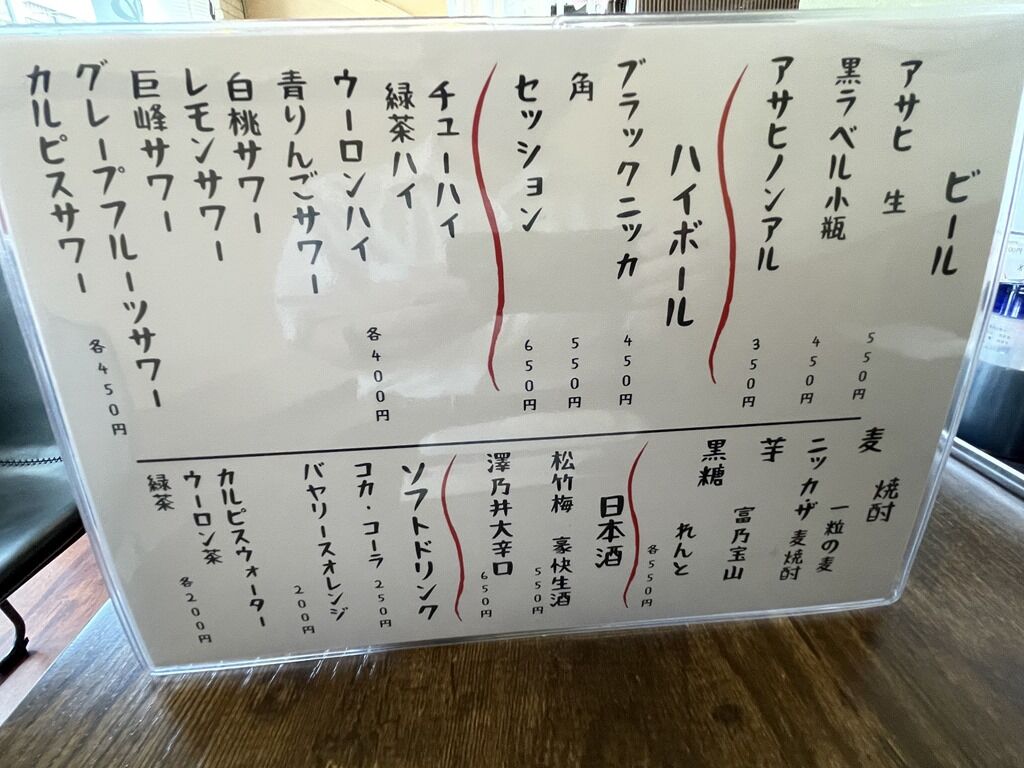 ビール
アサヒ 生
550円
黒ラベル小瓶
450円
アサヒノンアル
350円
ハイボール
ブラックニッカ
450円
角
550円
セッション
650円
チューハイ
緑茶ハイ
ウーロンハイ
各400円
青りんごサワー
白桃サワー
レモンサワー
巨峰サワー
グレープフルーツサワー
カルピスサワー
各450円
焼酎
麦
一粒の麦
ニッカ・ザ 麦焼酎
芋
富乃宝山
黒糖
れんと
各550円
日本酒
松竹梅 豪快生酒
550円
澤乃井大辛口
650円
ソフトドリンク
コカ・コーラ 250円
バヤリースオレンジ
200円
カルピスウォーター
ウーロン茶
緑茶
各200円